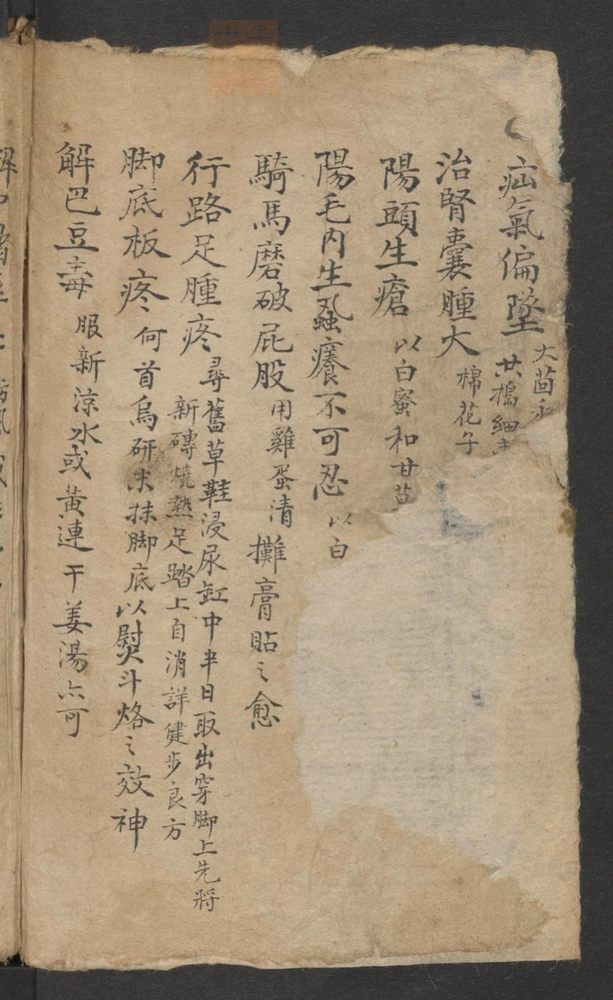 疝氣偏墜 大茴
共搗細
治腎囊腫大 棉花子
陽頭生瘡 以白蜜和甘
陽毛內生蝨癢不可忍 以白
騎馬磨破屁股 用雞蛋清攤膏貼之愈
行路足腫疼 尋舊草鞋浸尿缸中半日取出穿脚上先將
新磚燒熱足踏上自消詳健步良方
脚底板疼 何首烏研末抹脚底以熨斗烙之效神
解巴豆毒 服新涼水或黃連干姜湯亦可